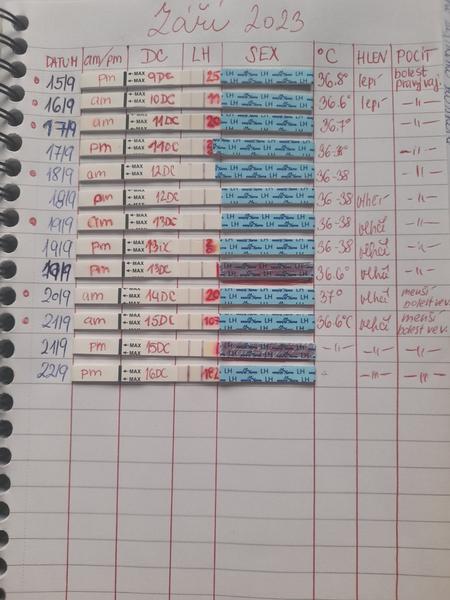 Září 2023
DATUM am/pm DC LH SEX °C HLEN POCIT
15/9 pm ← MAX 9DC 25 LH LH LH 36.8° lepí bolest pravý vaj.
16/9 am ← MAX 10DC 11 LH LH LH 36.6° lepí -||-
17/9 am ← MAX 11DC 20 LH LH LH 36.7° -||-
17/9 pm ← MAX 11DC LH LH LH -||-
18/9 am ← MAX 12DC LH LH LH 36-38 -||-
18/9 pm ← MAX 12DC LH LH LH 36-38 -||-
19/9 am ← MAX 13DC LH LH LH 36-38 vlhčí -||-
19/9 pm ← MAX LH LH LH 36-38 vlhčí -||-
19/9 pm ← MAX 13DC LH LH LH 36.6° vlhčí -||-
20/9 am ← MAX 14DC 20 LH LH LH 37° vlhčí menší
21/9 am ← MAX 15DC LH LH LH 36.6°C vlhčí menší
21/9 pm ← MAX 15DC LH LH LH -||- -||- -||-
22/9 pm ← MAX 16DC LH LH LH -||- -||-